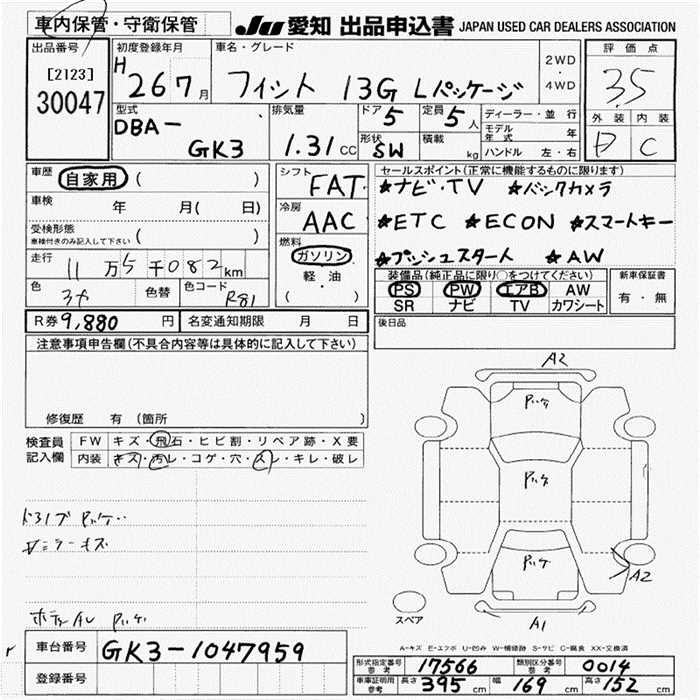 車内保管・守衛保管
JU 愛知 出品申込書 JAPAN USED CAR DEALERS ASSOCIATION
出品番号
[2123]
30047
初度登録年月
H 26 7月
車名・グレード
フィット 13G Lパッケージ
2WD
・
4WD
評価点
3.5
外装 内装
C
型式
DBA-
GK3
排気量
1.31 CC
ドア 5
形状 SW
定員 5人
積載 kg
ディーラー・並行
モデル年式 年
ハンドル 左・右
車歴 自家用 ( )
車検 年 月( 日)
受検形態
車検付きのみ記入して下さい ( )
走行 11万5千082km
色 色替 色コード R81
シフト FAT
冷房 AAC
燃料
ガソリン
軽・油
( )
セールスポイント(正常に機能するものに限ります)
★ナビ・TV ★バックカメラ
★ETC ★ECON ★スマートキー
★プッシュスタート ★AW
装備品(純正品に限り○をつけてください)
PS PW エアB AW
SR ナビ TV カワシート
新車保証書
有・無
R券 9,880 円 名変通知期限 月 日
後日品
注意事項申告欄(不具合内容等は具体的に記入して下さい)
修復歴 有 (箇所 )
検査員記入欄
FW キズ・飛石・ヒビ割・リペア跡・X要
内装 キズ・汚レ・コゲ・穴・スレ・キレ・破レ
A2
A2
A1
スペア
A-キズ E-エクボ U-凹み W-補修跡 S-サビ C-腐食 XX-交換済
車台番号 GK3-1047959
登録番号
形式指定番号 参考 17566 類別区分番号 参考 0014
車庫証明用 参考 長さ 395 cm 幅 169 cm 高さ 152 cm